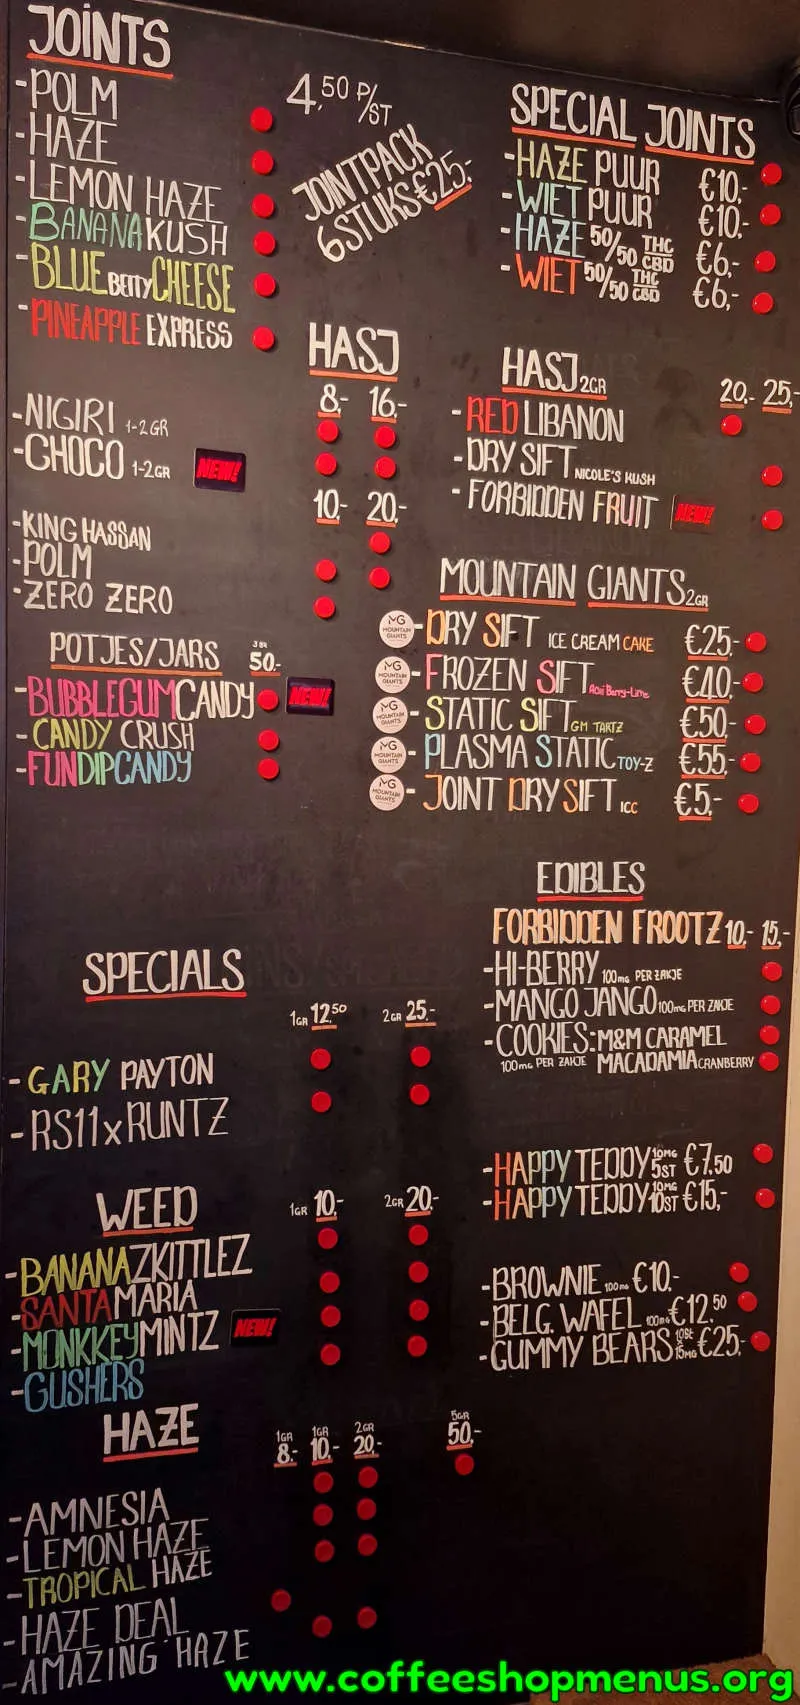 JOINTS
-POLM
-HAZE
-LEMON HAZE
-BANANA KUSH
-BLUE BERRY CHEESE
-PINEAPPLE EXPRESS
4,50 P/ST
JOINTPACK
6 STUKS €25,-
SPECIAL JOINTS
-HAZE PUUR €10,-
-WIET PUUR €10,-
-HAZE 50/50 THC CBD €6,-
-WIET 50/50 THC CBD €6,-
HASJ
8,- 16,-
-NIGIRI 1-2GR
-CHOCO 1-2GR NEW!
10,- 20,-
-KING HASSAN
-POLM
-ZERO ZERO
HASJ 2GR 20,- 25,-
-RED LIBANON
-DRY SIFT NICOLE'S KUSH
-FORBIDDEN FRUIT NEW!
POTJES/JARS 3GR 50,-
-BUBBLEGUM CANDY NEW!
-CANDY CRUSH
-FUNDIPCANDY
MOUNTAIN GIANTS 2GR
MG MOUNTAIN GIANTS -DRY SIFT ICE CREAM CAKE €25,-
MG MOUNTAIN GIANTS -FROZEN SIFT Acai Berry-Lime €40,-
MG MOUNTAIN GIANTS -STATIC SIFT GM TARTZ €50,-
MG MOUNTAIN GIANTS -PLASMA STATIC TOY-Z €55,-
MG MOUNTAIN GIANTS -JOINT DRY SIFT ICC €5,-
EDIBLES
FORBIDDEN FROOTZ 10,- 15,-
-HI-BERRY 100mg PER ZAKJE
-MANGO JANGO 100mg PER ZAKJE
-COOKIES: M&M CARAMEL
100mg PER ZAKJE MACADAMIA CRANBERRY
-HAPPY TEDDY 10MG 5ST €7.50
-HAPPY TEDDY 10MG 10ST €15,-
-BROWNIE 100mg €10,-
-BELG. WAFEL 100mg €12,50
-GUMMY BEARS 10St 15MG €25,-
SPECIALS
1GR 12,50 2GR 25,-
-GARY PAYTON
-RS11 x RUNTZ
WEED 1GR 10,- 2GR 20,-
-BANANA ZKITTLEZ
-SANTA MARIA
-MONKKEY MINTZ NEW!
-GUSHERS
HAZE
1GR 8,- 1GR 10,- 2GR 20,- 5GR 50,-
-AMNESIA
-LEMON HAZE
-TROPICAL HAZE
-HAZE DEAL
-AMAZING HAZE
www.coffeeshopmenus.org